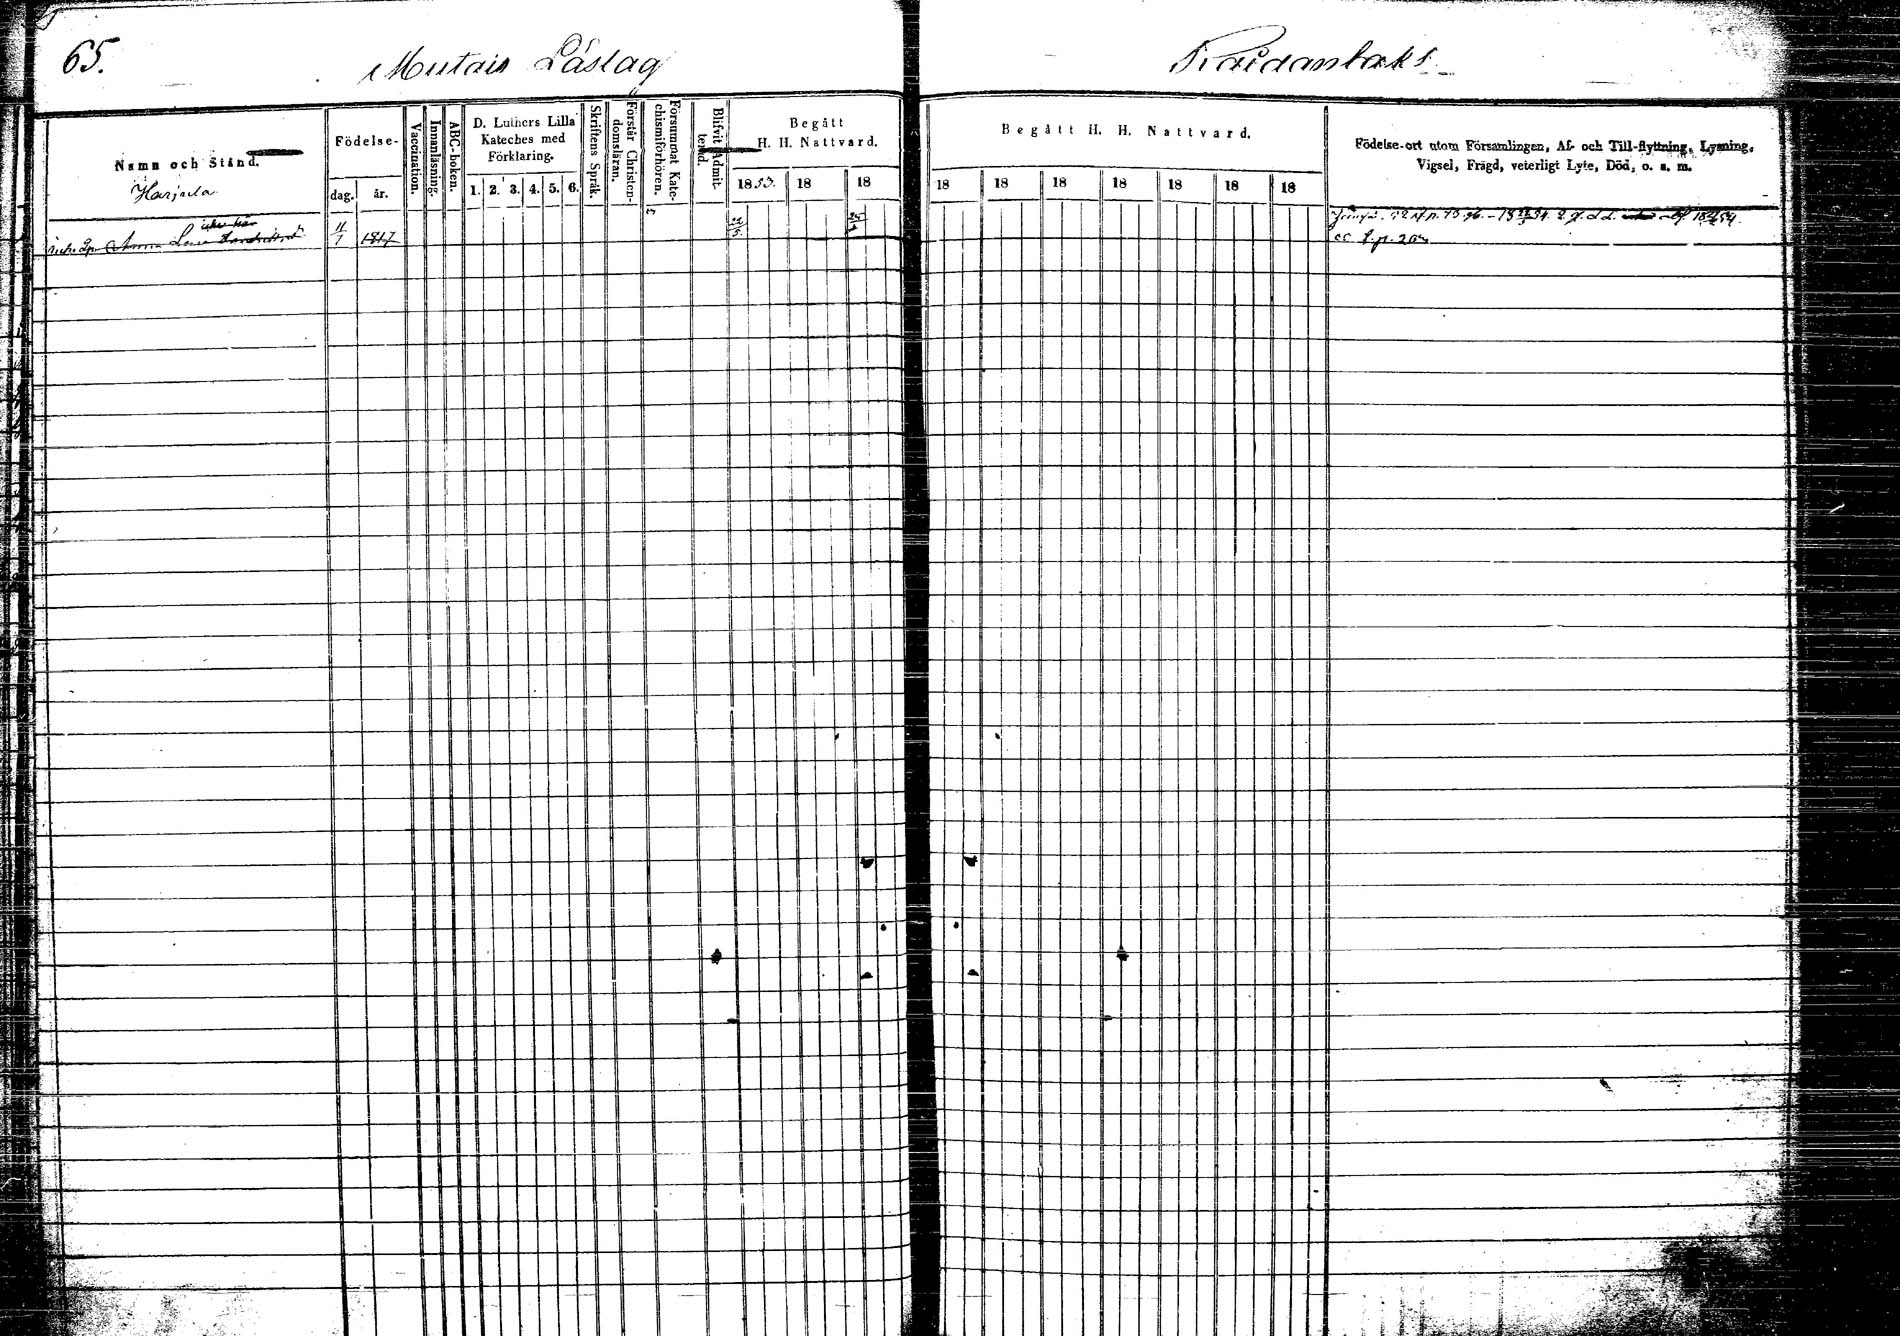 65.
Mutais Låslag
Namn och Stånd.
Harjula
Födelse-
dag.
år.
Vaccination.
Innanläsning.
ABC-boken.
D. Luthers Lilla
Kateches med
Förklaring.
1. 2. 3. 4. 5. 6.
Skriftens Språk.
Förstår Christen-
domsläran.
Försummat Kate-
chismiförhören.
Blifvit Admit-
terad.
Begått
H. H. Nattvard.
1853. 18 18
Anna
11/1 1817
Begått H. H. Nattvard.
18 18 18 18 18 18 18
Födelse-ort utom Församlingen, Af- och Till-flyttning, Lysning,
Vigsel, Frägd, veterligt Lyte, Död, o. s. m.